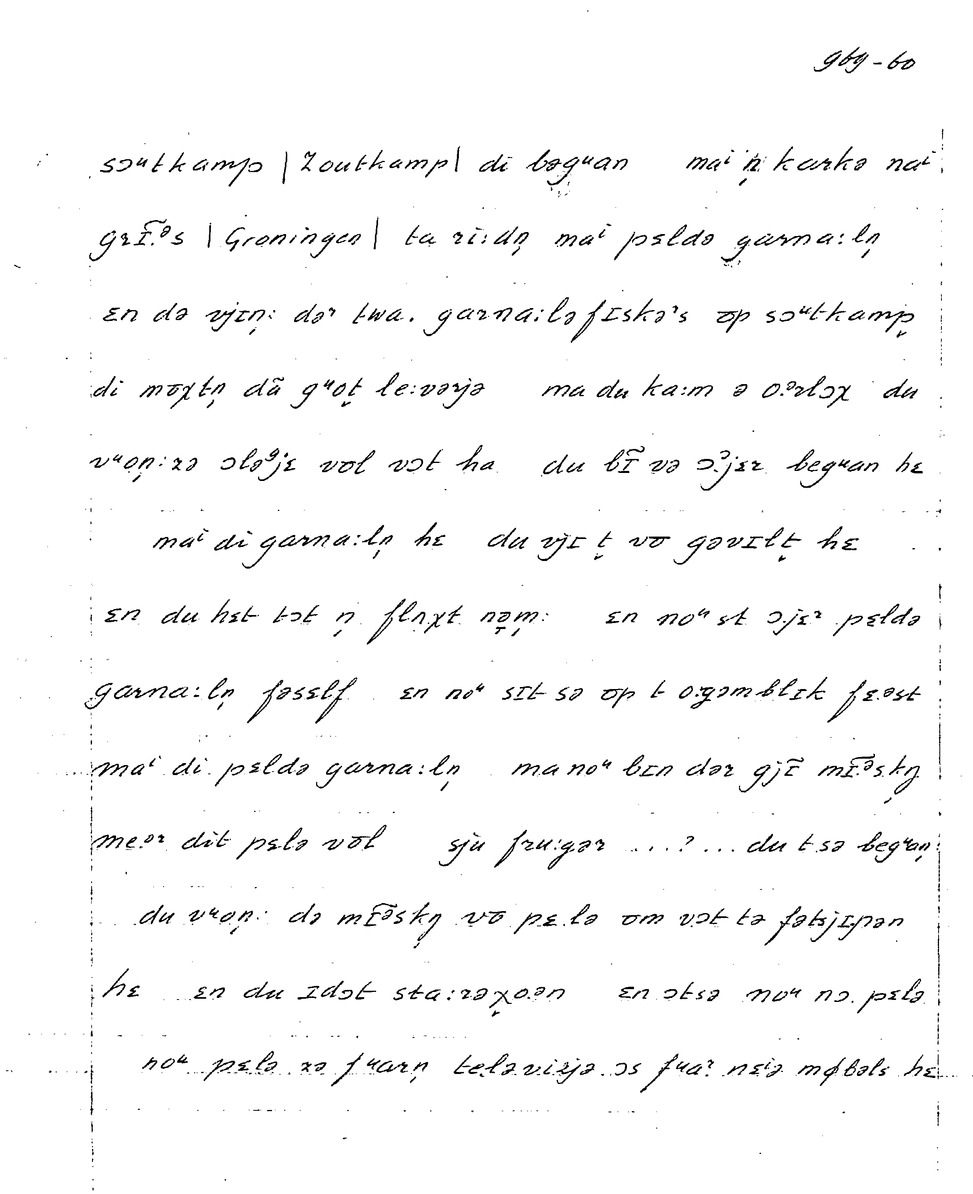 g6g-60
sɔᵘtkamp | Zoutkamp | di bəgᵘan maⁱ n̩ karkə naⁱ
grɪ̃.ᵊs | Groningen | ta ri:dn̩ maⁱ pɛldə garna:ln̩
ɛn də vjɪn̩: dər twa. garna:ləfɪskəʳs ʊp sɔᵘtkamp̩
di mʊxtn̩ dã gᵘot̬ le:vərjə ma du ka:m ə o.ᵊrlɔχ du
vᵘon̩:zə ɔləᵍjɛ vʊl vɔt ha du bɪ̃ və ɔˀjɛr begᵘan hɛ
maⁱ di garna:ln̩ hɛ du vjɪ t̬ vʊ gəvɪlt̬ hɛ
ɛn du hɛt tɔt n̩ flʌχt nəm̩: ɛn noᵘ st ɔ.jɛʳ pɛldə
garna:ln̩ fəsɛlf ɛn noᵘ sɪt sə ʊp t o:gəmblɪk fɛ.ᵊst
maⁱ di pɛldə garna:ln̩ ma noᵘ bɪn dər gjɪ̃ mɪ̃.ᵊskŋ̩
me.ᵊr dit pɛlə vʊl sju fru:gər ...?... du t sə begᵘan̩:
du vᵘon̩: də mɪ̃ᵊskŋ̩ vʊ pɛ.lə ʊm vɔt tə fətsjɪnən
hɛ ɛn du ɪdɔt sta:rəχo.ən ɛn ɔtsə noᵘ nɔ. pɛlə
noᵘ pɛlə zə fᵘarn̩ teləvizjə ɔs fᵘaʳ nɛⁱə møbəls hɛ